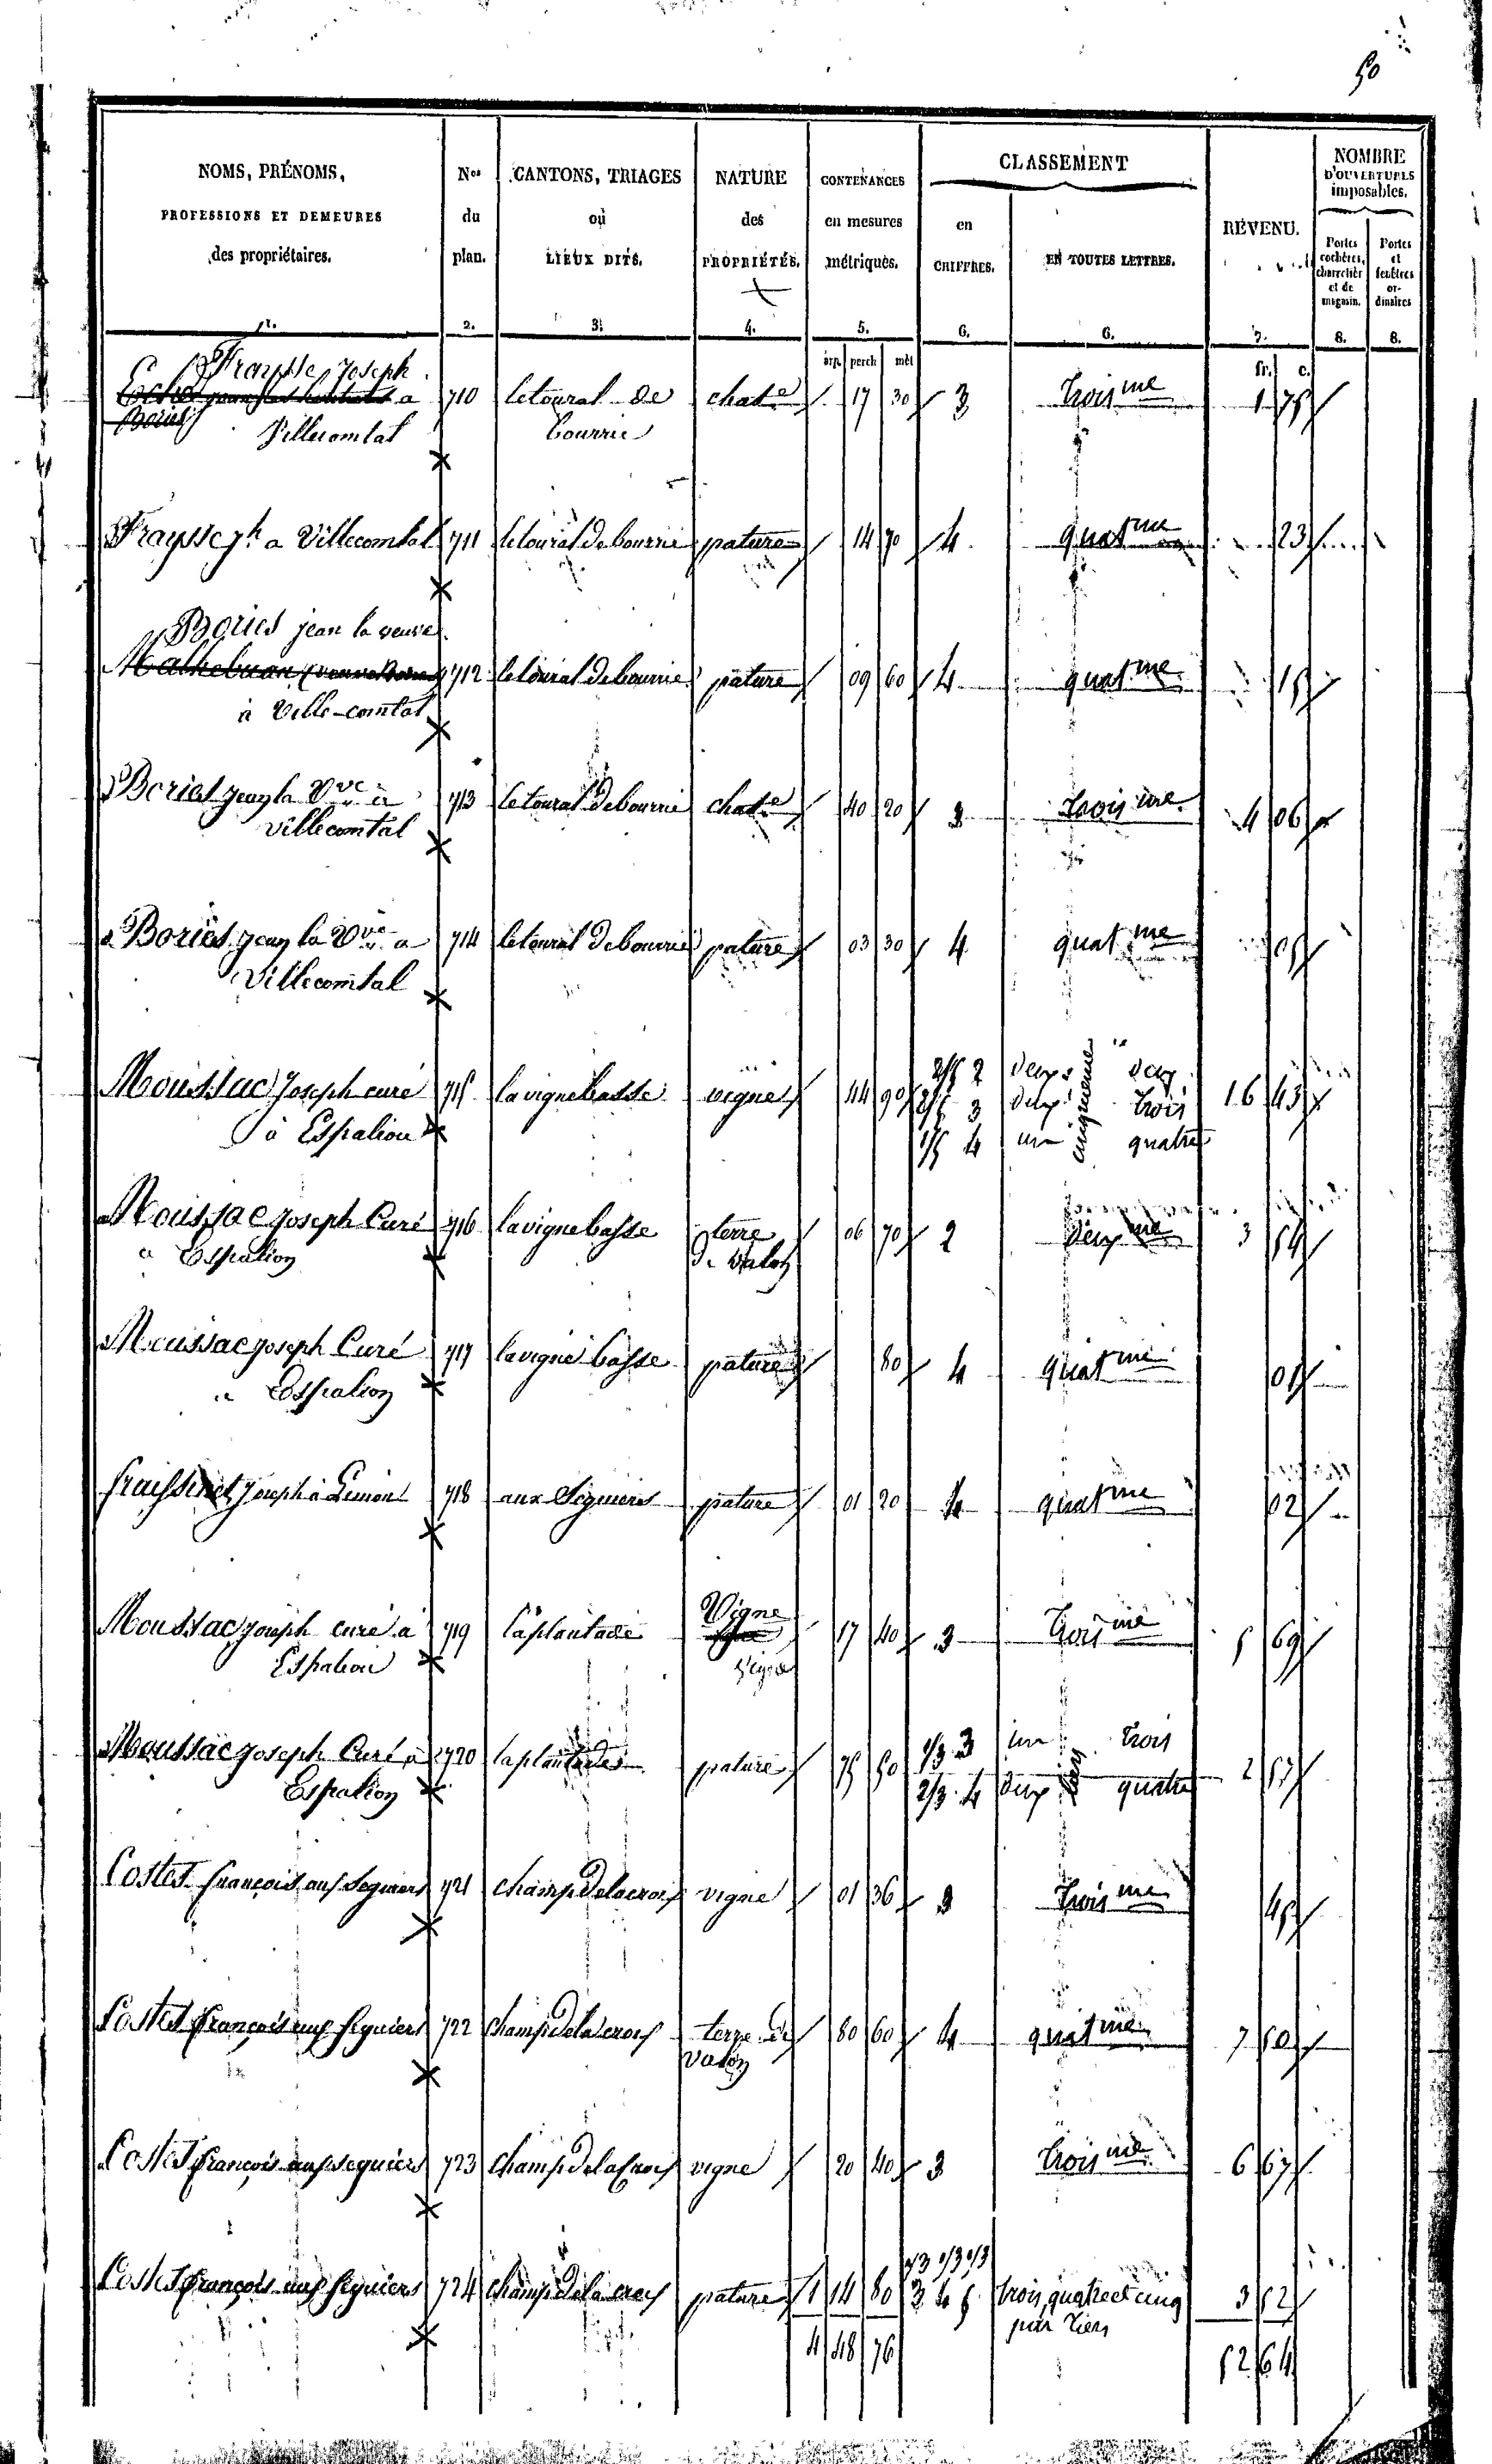 50
NOMS, PRÉNOMS,
PROFESSIONS ET DEMEURES
des propriétaires.
1.
Nos
du
plan.
2.
CANTONS, TRIAGES
où
LIEUX DITS.
3.
NATURE
des
PROPRIÉTÉS.
4.
CONTENANCES
en mesures
métriques.
5.
CLASSEMENT
en
CHIFFRES.
6.
EN TOUTES LETTRES.
6.
REVENU.
7.
NOMBRE
D'OUVERTURES
imposables.
Portes
cochères,
charretier
et de
magasin.
8.
Portes
et
fenêtres
or-
dinaires
8.
arp. perch mèt
fr. c.
Fraysse Joseph
a 710 letoural de chat.e 17 30 3 trois me 1 75
Bories Villecomtal bourrie
Fraysse jh a Villecomtal 711 letoural de bourrie pature 14 70 4 quat me 23
Bories jean la veuve
712 letoural de bourrie pature 09 60 4 quat me 15
à Ville-comtal
Bories jean la Vve a 713 letoural de bourrie chat.e 40 20 3 trois me 4 06
villecomtal
Bories jean la Vve a 714 letoural de bourrie pature 03 30 4 quat me 05
Villecomtal
2/5 2 deux deux
Moussac Joseph curé 715 la vigne basse vigne 44 90 2/5 3 deux cinquieme trois 16 43
à Espalion 1/5 4 un quatre
Moussac joseph Curé 716 la vigne basse terre 06 70 2 deux me 3 54
a Espalion de valon
Moussac joseph Curé 717 la vigne basse pature 80 4 quat me 01
a Espalion
fraissinet joseph à Limon 718 aux Séguiers pature 01 20 4 quat me 02
Vigne
Moussac joseph curé a 719 laplantade 17 40 3 trois me 5 69
Espalion Vigne
1/3 3 un trois
Moussac joseph Curé a 720 laplantade pature 75 50 2 57
Espalion 2/3 4 deux tiers quatre
Costes françois aux Seguiers 721 champ de la croix vigne 01 36 3 trois me 45
Costes françois aux seguiers 722 champ de la croix terre de 80 60 4 quat me 7 50
valon
Costes françois aux seguiers 723 champ de la Croix vigne 20 40 3 trois me 6 67
1/3 1/3 1/3
Costes françois aux seguiers 724 champ de la croix pature 1 14 80 3 4 5 trois, quatre et cinq 3 52
par tiers
4 48 76 52 64